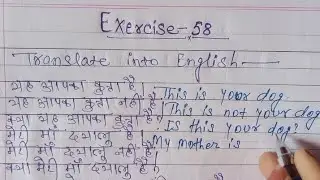 Exercise-58
Translate into English—
यह आपका कुत्ता है। This is your dog.
यह आपका कुत्ता नहीं है। This is not your dog
क्या यह आपका कुत्ता है? Is this your dog?
मेरी माँ दयालु है। My mother is
मेरी माँ दयालु नहीं है।
क्या मेरी माँ दयालु है?